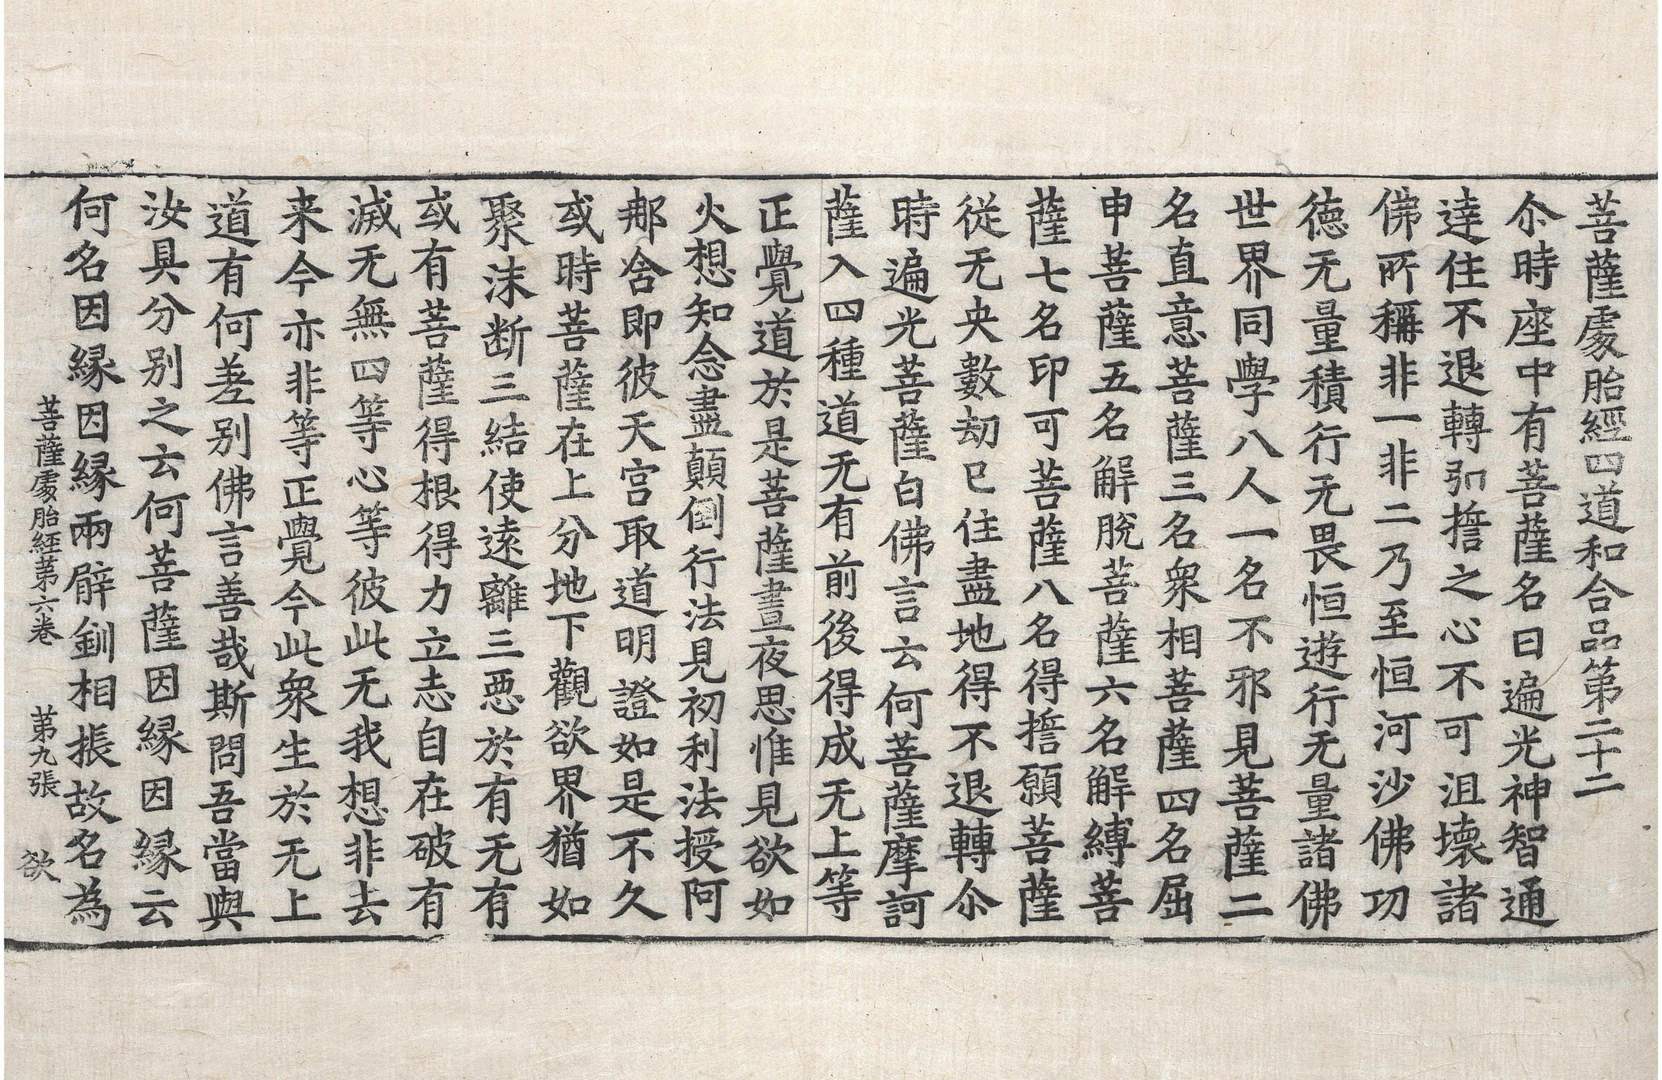 菩薩處胎經四道和合品第二十二
尒時座中有菩薩名曰遍光神智通
達住不退轉弘擔之心不可沮壞諸
佛所稱非一非二乃至恒河沙佛功
徳无量積行无畏恒遊行无量諸佛
世界同學八人一名不邪見菩薩二
名直意菩薩三名衆相菩薩四名屈
申菩薩五名解脫菩薩六名解縛菩
薩七名印可菩薩八名得擔願菩薩
從无央數劫已住盡地得不退轉尒
時遍光菩薩白佛言云何菩薩摩訶
薩入四種道无有前後得成无上等
正覺道於是菩薩晝夜思惟見欲如
火想知念盡顛倒行法見初利法授阿
那含即彼天宮取道明證如是不久
或時菩薩在上分地下觀欲界猶如
聚沫断三結使遠離三惡於有无有
或有菩薩得根得力立志自在破有
滅无無四等心等彼此无我想非去
来今亦非等正覺今此衆生於无上
道有何差別佛言善哉斯問吾當與
汝具分別之云何菩薩因縁因縁云
何名因縁因縁兩臂釧相振故名為
菩薩處胎經苐六卷 苐九張 欲